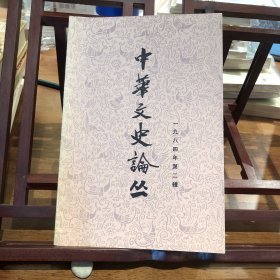 中華文史論丛
一九八四年第二辑